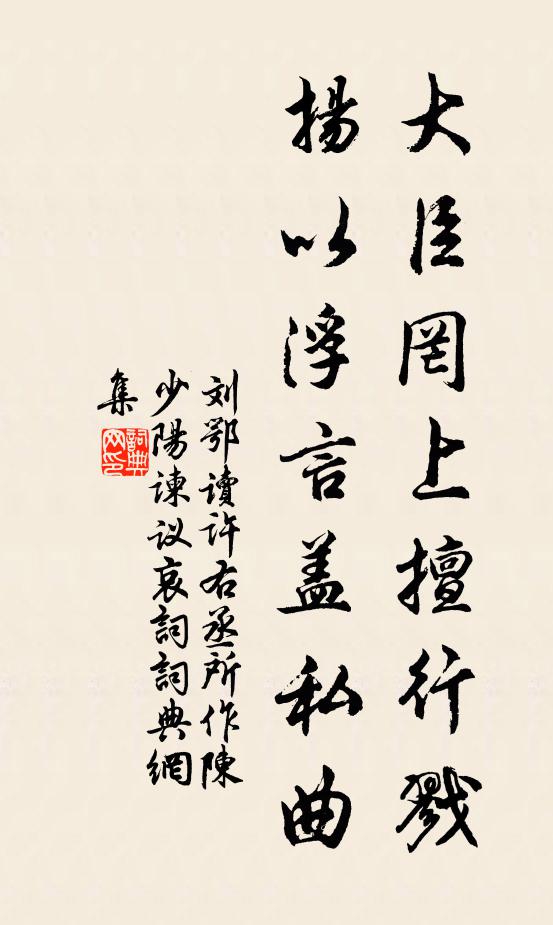 大臣罔上擅行戮
揚以浮言盖私曲
刘鄂讀许右丞所作陳
少陽諫议哀詞詞典網
集
詞典
网印